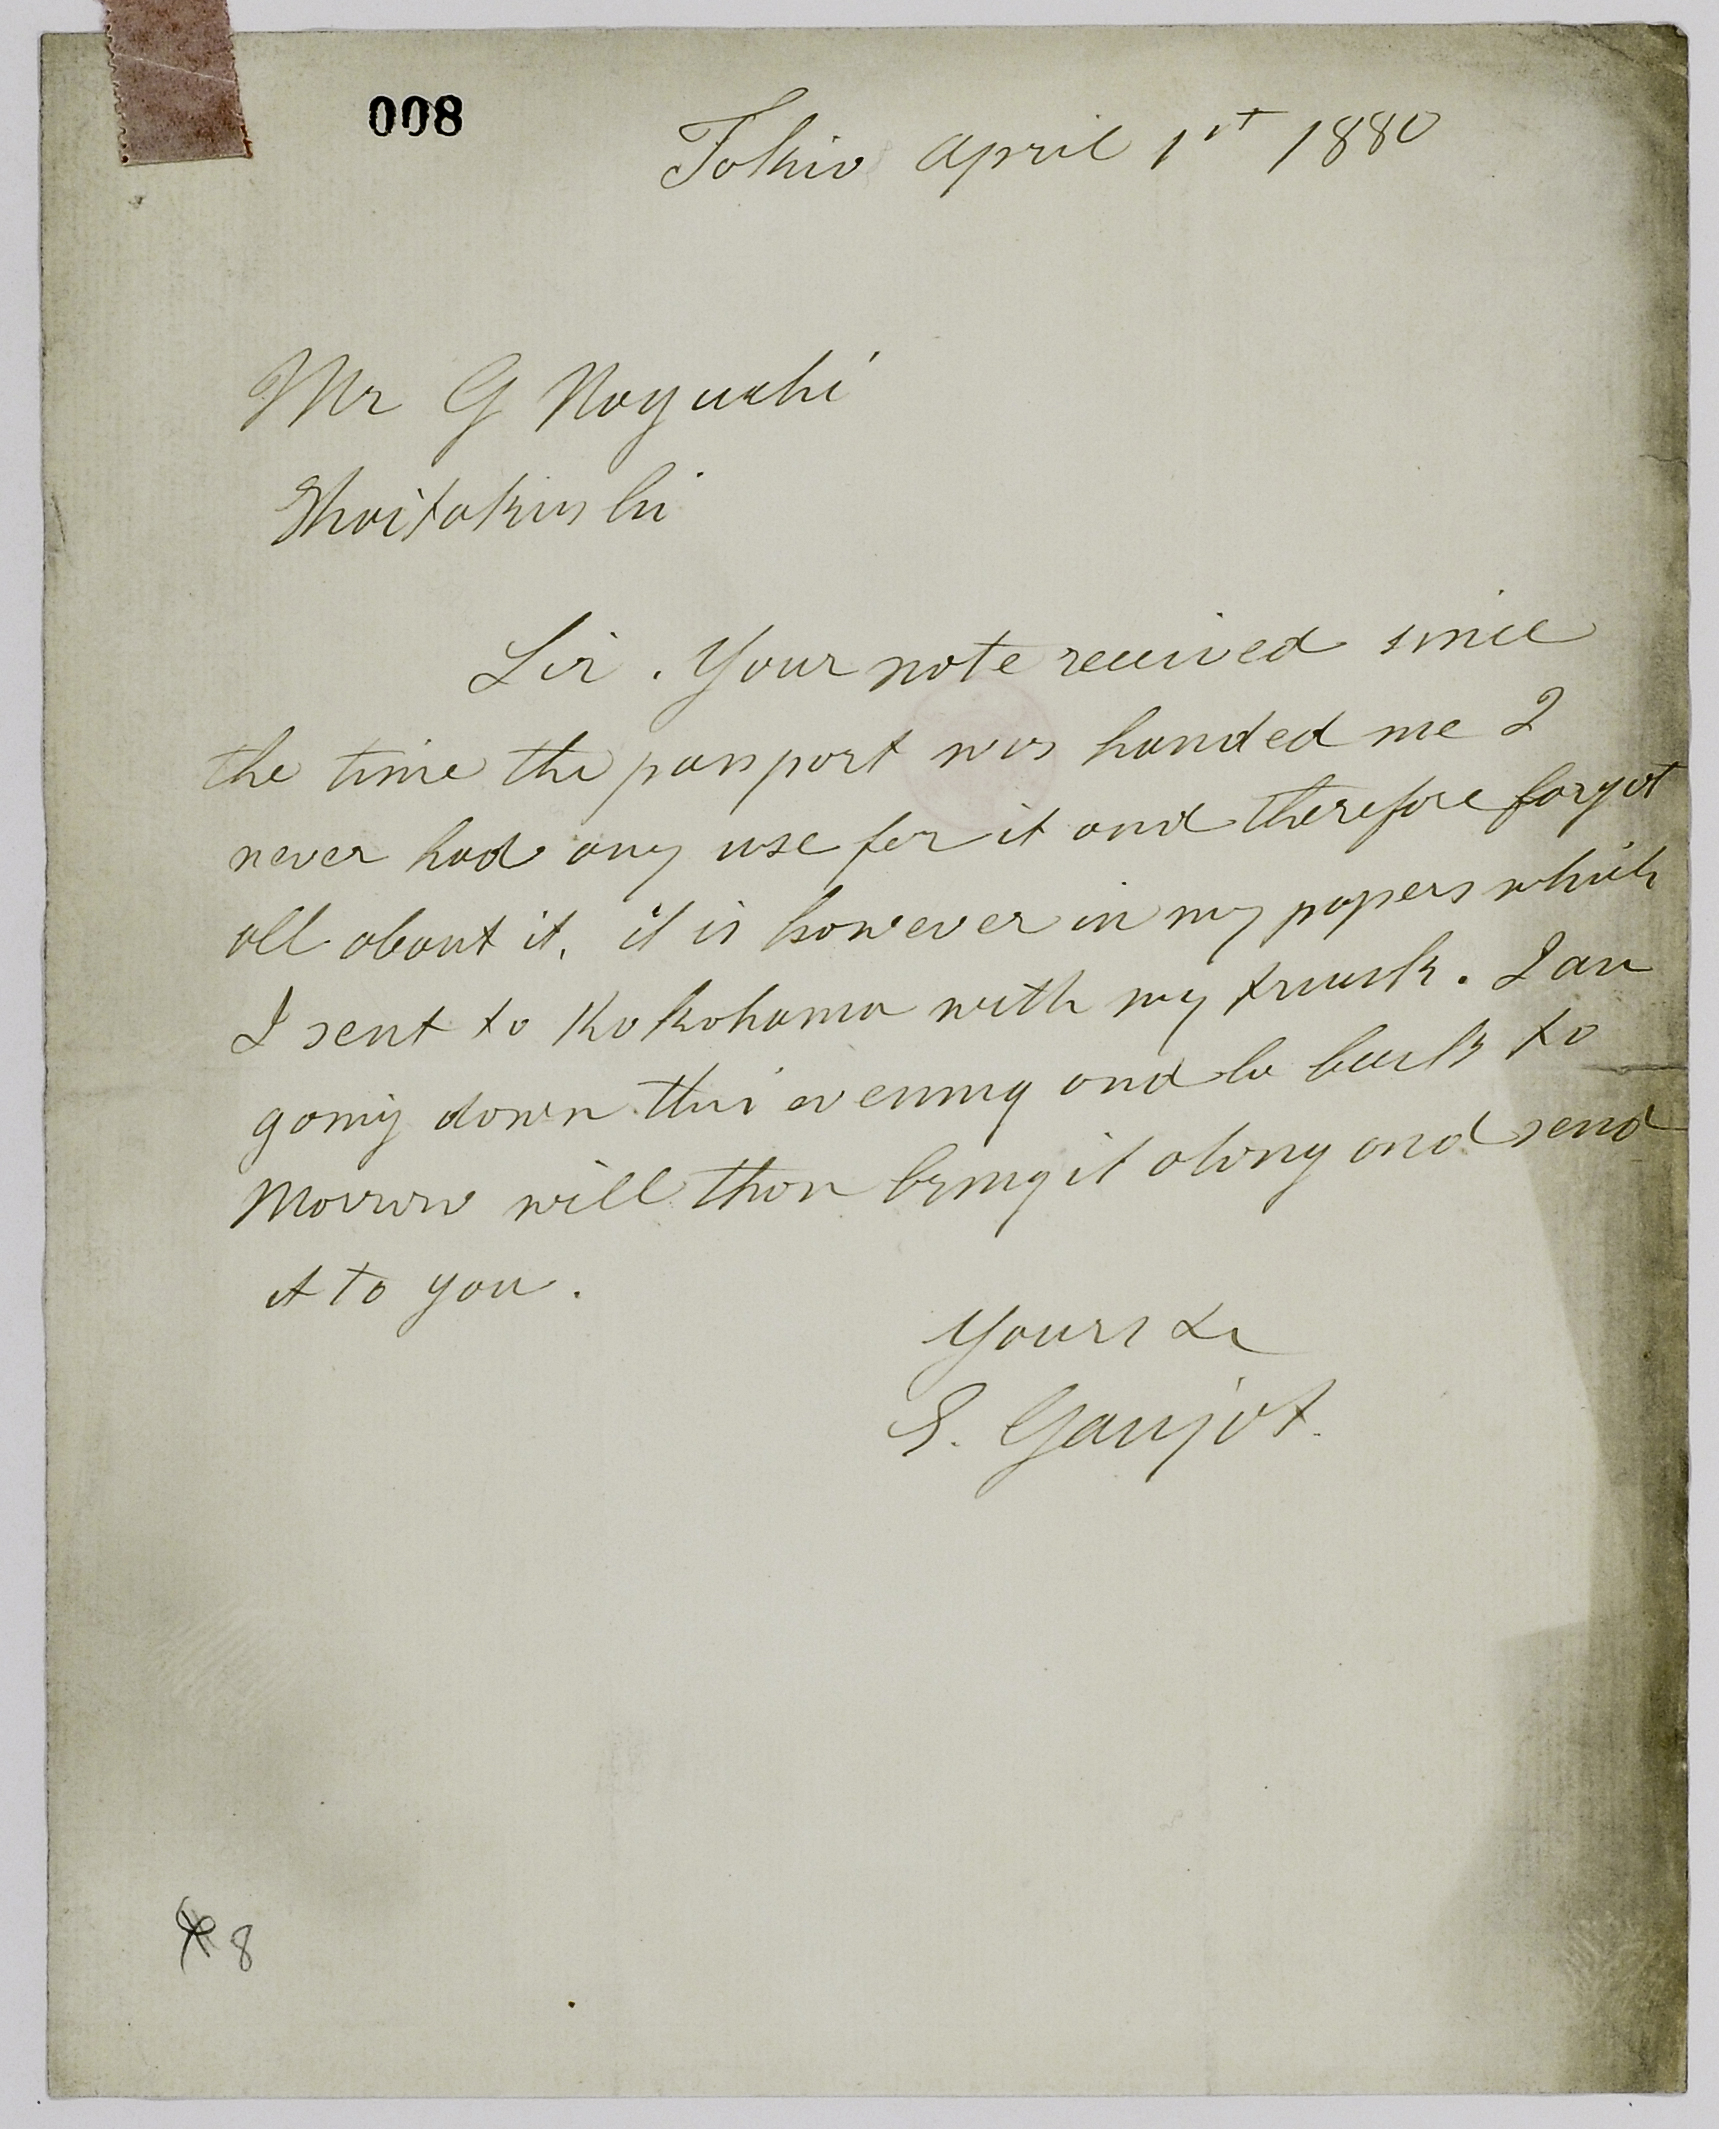 008
Tokio April 1st 1880
Mr G Noguchi
Sir. Your note received since
the time the passport was handed me I
never had any use for it and therefore forgot
all about it, it is however in my papers which
I sent to Kokohama with my trunk. I am
going down this evening and be back to
Morrow will then bring it along and send
it to you.
Yours &c
E. Gaujot.
8